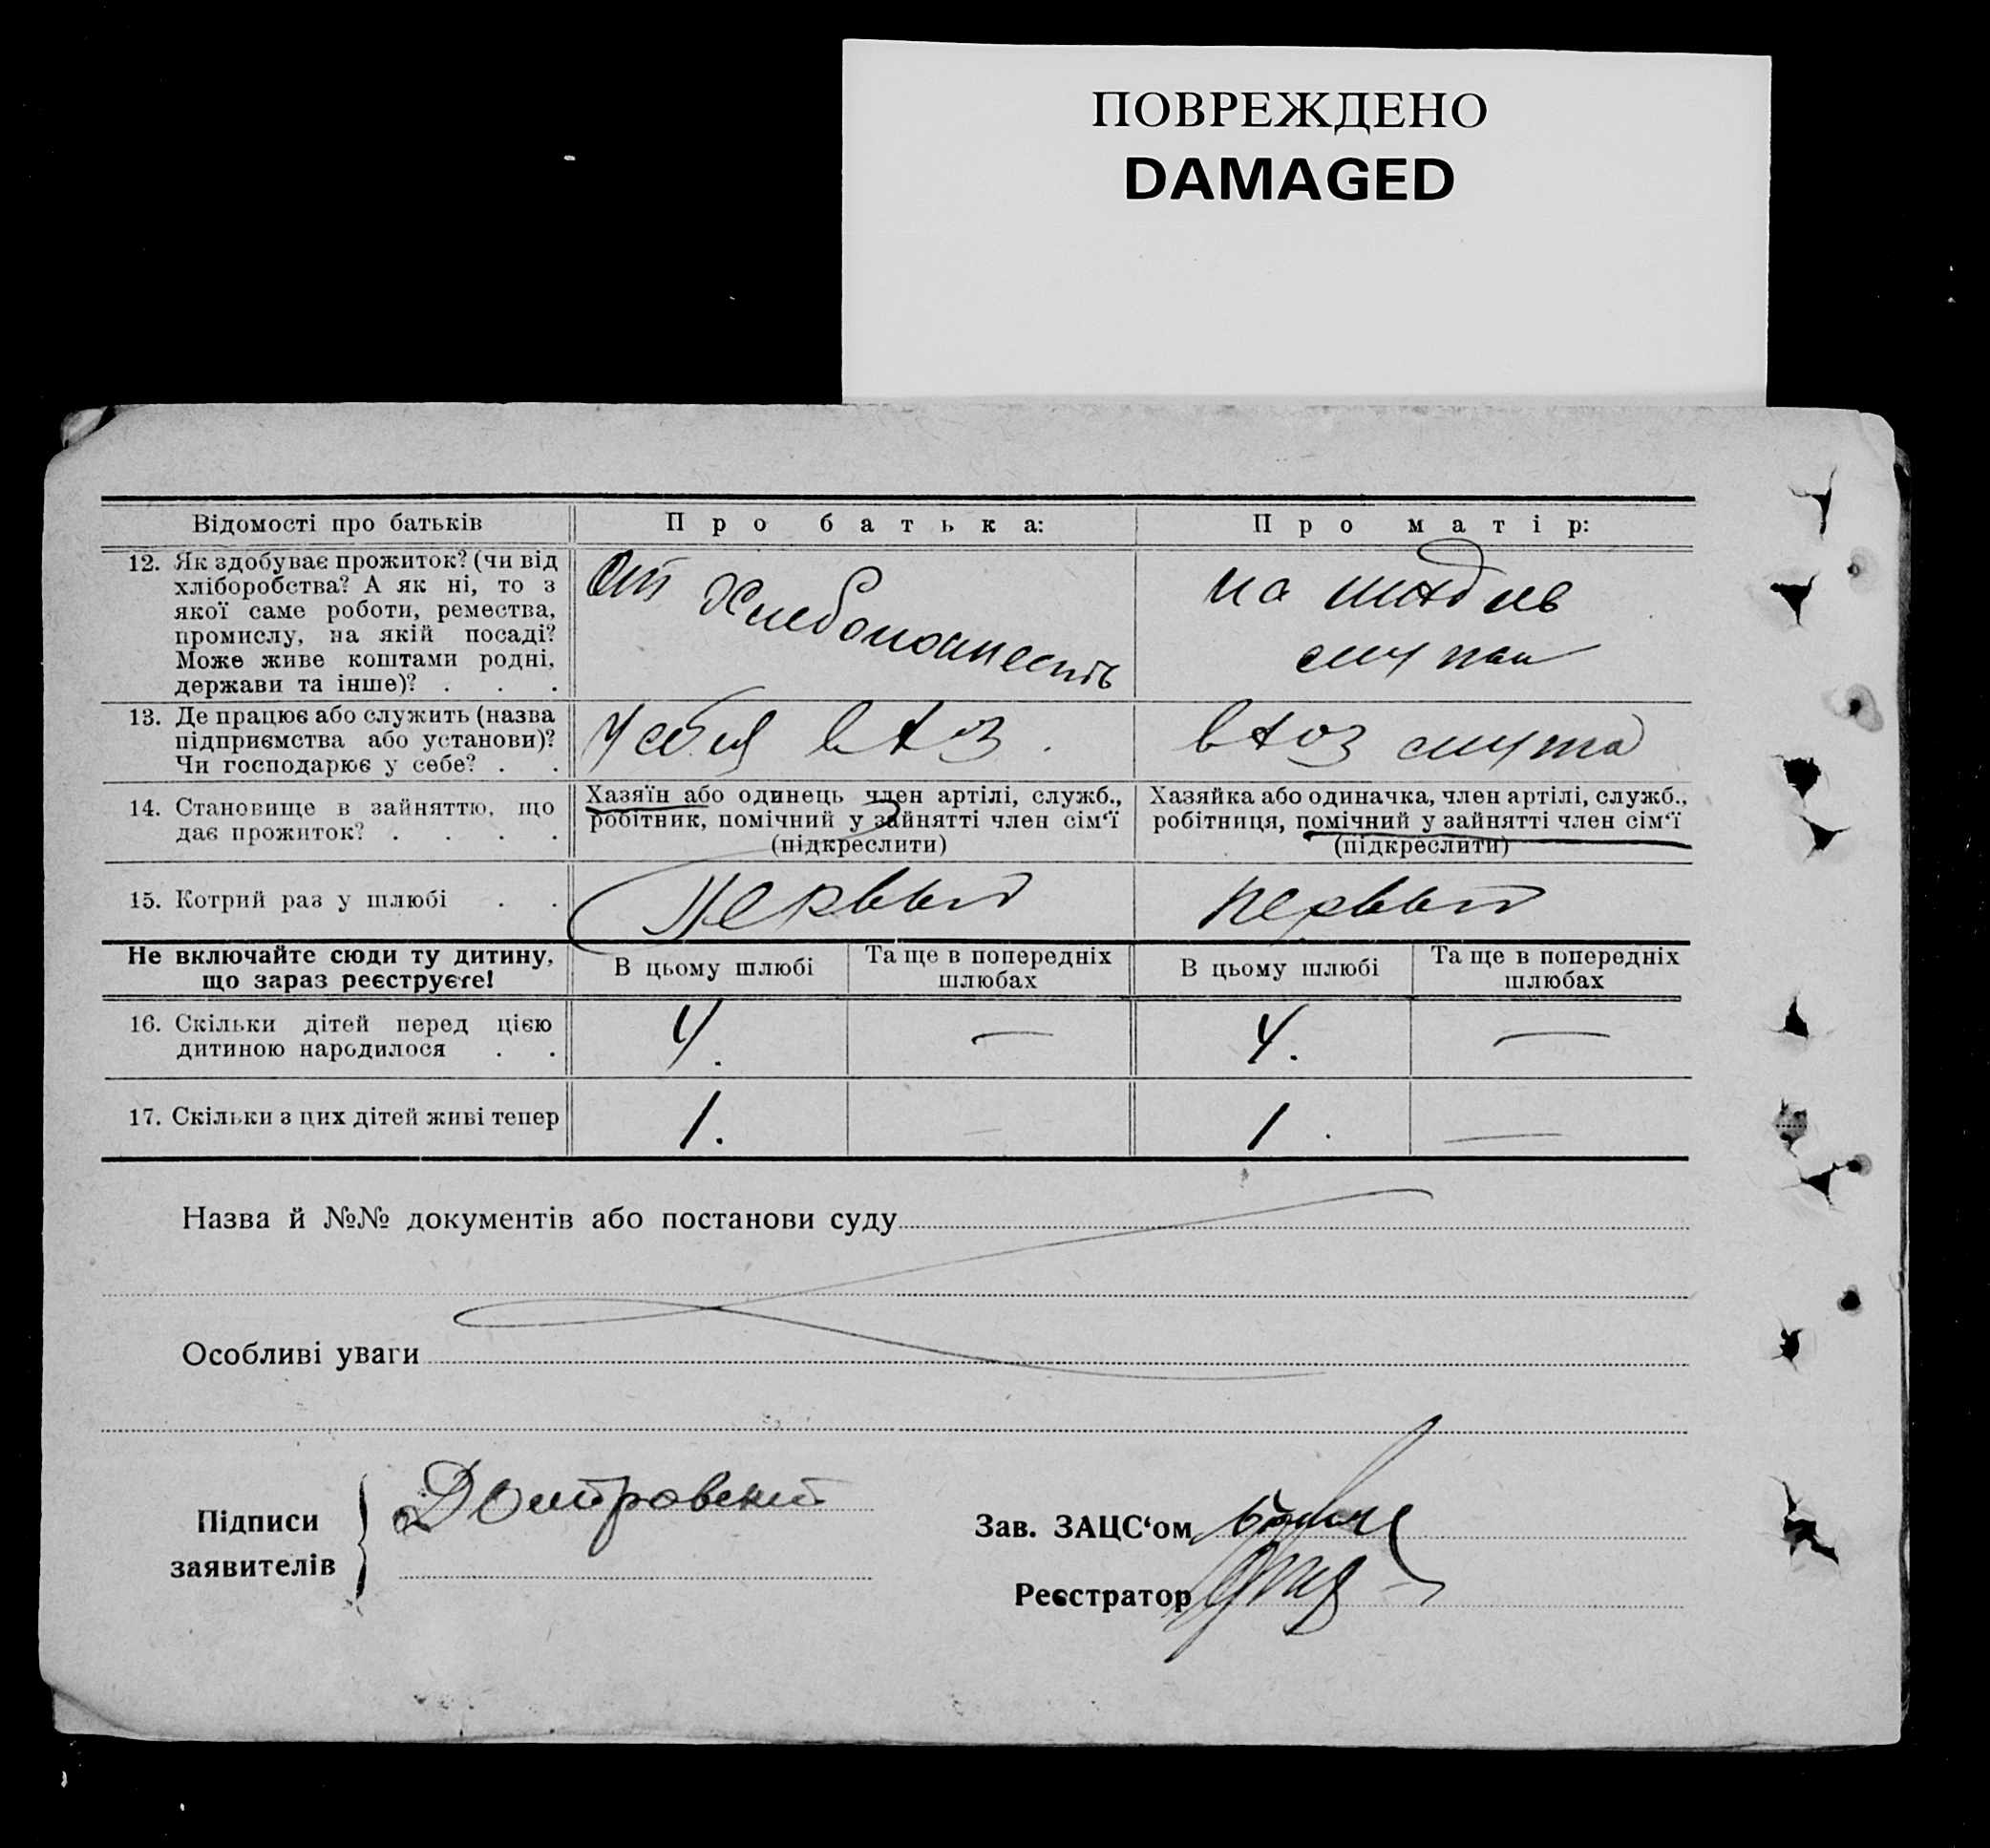 ПОВРЕЖДЕНО
DAMAGED
Відомості про батьків
Про батька:
Про матір:
12. Як здобуває прожиток? (чи від
хліборобства? А як ні, то з
якої саме роботи, ремества,
промислу, на якій посаді?
Може живе коштами родні,
держави та інше)? . . .
От
на
13. Де працює або служить (назва
підприємства або установи)?
Чи господарює у себе? . .
У себя
14. Становище в зайняттю, що
дає прожиток? . . . .
Хазяїн або одинець член артілі, служб.,
робітник, помічний у зайнятті член сім'ї
(підкреслити)
Хазяйка або одиначка, член артілі, служб.,
робітниця, помічний у зайнятті член сім'ї
(підкреслити)
15. Котрий раз у шлюбі . .
Первый
первый
Не включайте сюди ту дитину,
що зараз реєструєте!
В цьому шлюбі
Та ще в попередніх
шлюбах
В цьому шлюбі
Та ще в попередніх
шлюбах
16. Скільки дітей перед цією
дитиною народилося . .
4.
—
4.
—
17. Скільки з цих дітей живі тепер
1.
—
1.
—
Назва й №№ документів або постанови суду
Особливі уваги
Підписи
заявителів
Зав. ЗАЦС'ом
Реєстратор